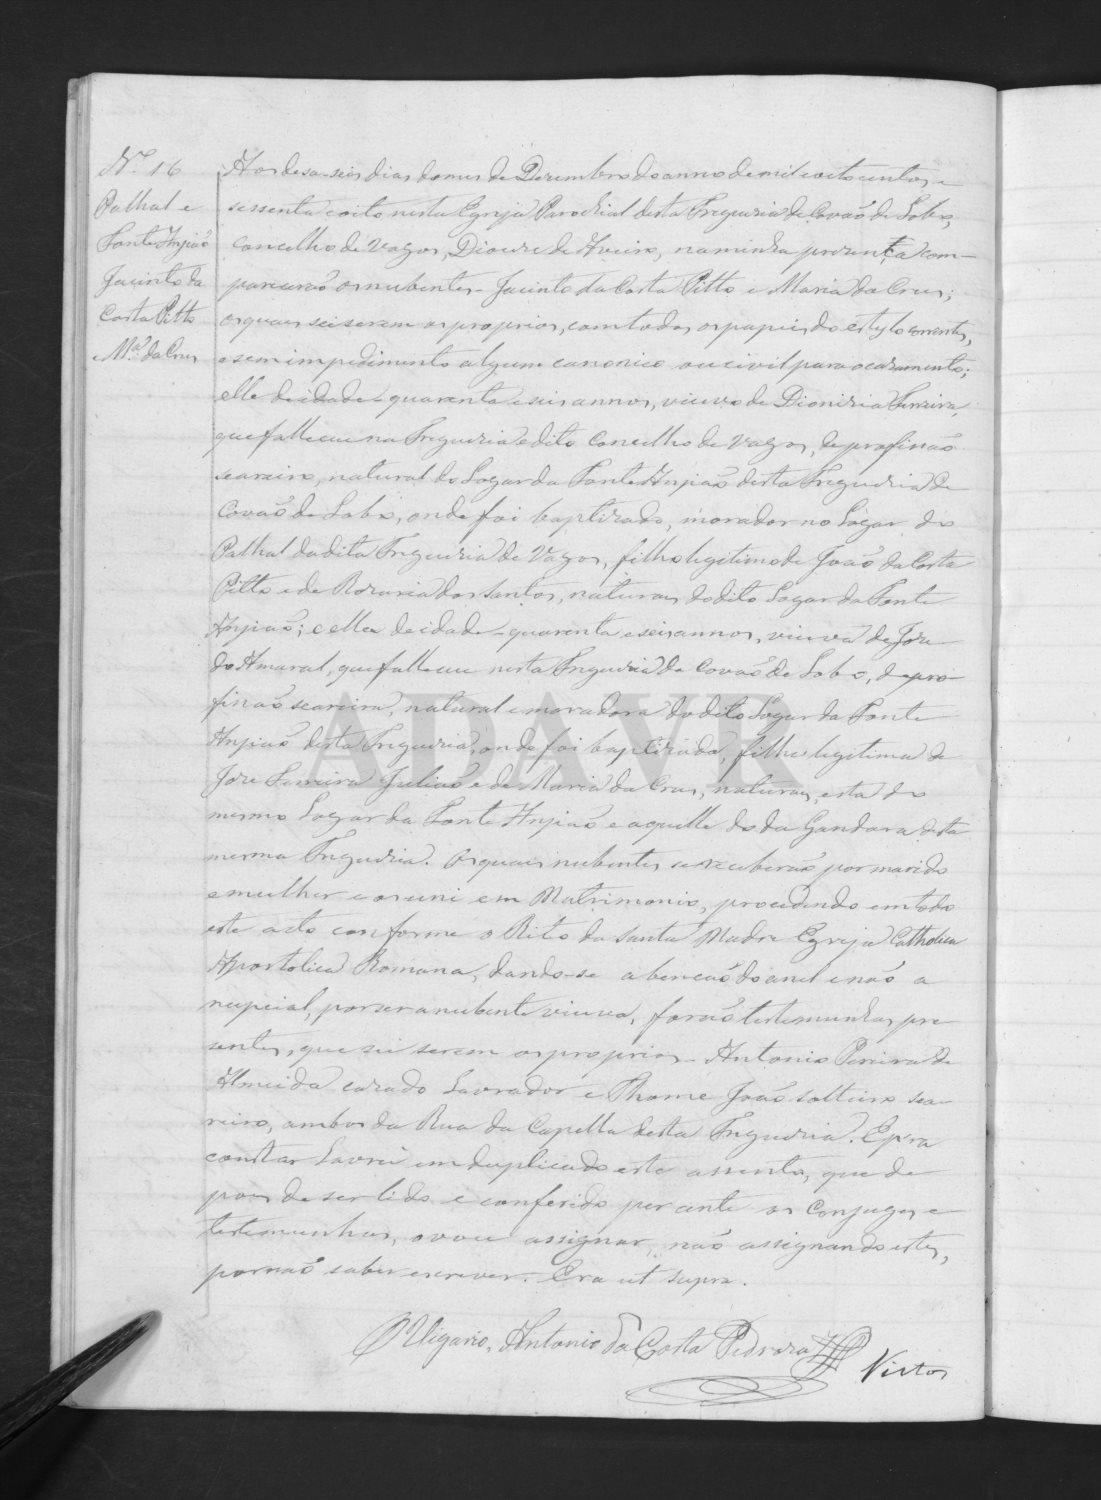 Nº 16
Palhal e
Fonte Anjião
Jacinto da
Costa Pitto
e M.ª da Crus
Aos desa-seis dias do mes de Dezembro do anno de mil oito centos e
sessenta e oito nesta Egreja Parochial desta Freguezia de Covão de Lobo,
Concelho de Vagos, Diocese de Aveiro, na minha prezença com-
parecerão os nubentes - Jacinto da Costa Pitto e Maria da Crus;
os quaes sei serem os proprios, com todos os papeis do estylo correntes,
e sem impedimento algum canonico ou civil para o cazamento;
elle de idade - quarenta e seis annos, viuvo de Dionizia Ferreira,
que falleceu na Freguezia e dito Concelho de Vagos, de profissão
seareiro, natural do Logar da Fonte Anjião desta Freguezia de
Covão de Lobo, onde foi baptizado, morador no Logar do
Palhal da dita Freguezia de Vagos, filho legitimo de João da Costa
Pitto e de Rozaria dos Santos, naturaes do dito Logar da Fonte
Anjião; e ella de idade - quarenta e seis annos, viuva de Joze
do Amaral, que falleceu nesta Freguezia de Covão de Lobo, de pro-
fissão seareira, natural e moradora do dito Logar da Fonte
Anjião desta Freguezia, onde foi baptizada, filha legitima de
Joze Ferreira Julião e de Maria da Crus, naturaes, esta do
mesmo Logar da Fonte Anjião e aquelle do da Gandara desta
mesma Freguezia. Os quaes nubentes se receberão por marido
e mulher e os uni em Matrimonio, procedendo em todo
este acto conforme o Rito da Santa Madre Egreja Catholica
Apostolica Romana, dando-se a benção do anel e não a
nupcial, por ser a nubente viuva, forão testemunhas pre
sentes, que sei serem os proprios - Antonio Pereira de
Almeida cazado Lavrador e Thome João solteiro sea-
reiro, ambos da Rua da Capella desta Freguezia. E p.ra
constar Lavrei em duplicado este assento, que de
pois de ser lido e conferido perante os Conjuges e
testemunhas, o vou assignar, não assignando estes,
por não saber escrever. Era ut supra.
O Vigario, Antonio da Costa Pedroza
Vistos
ADAVR